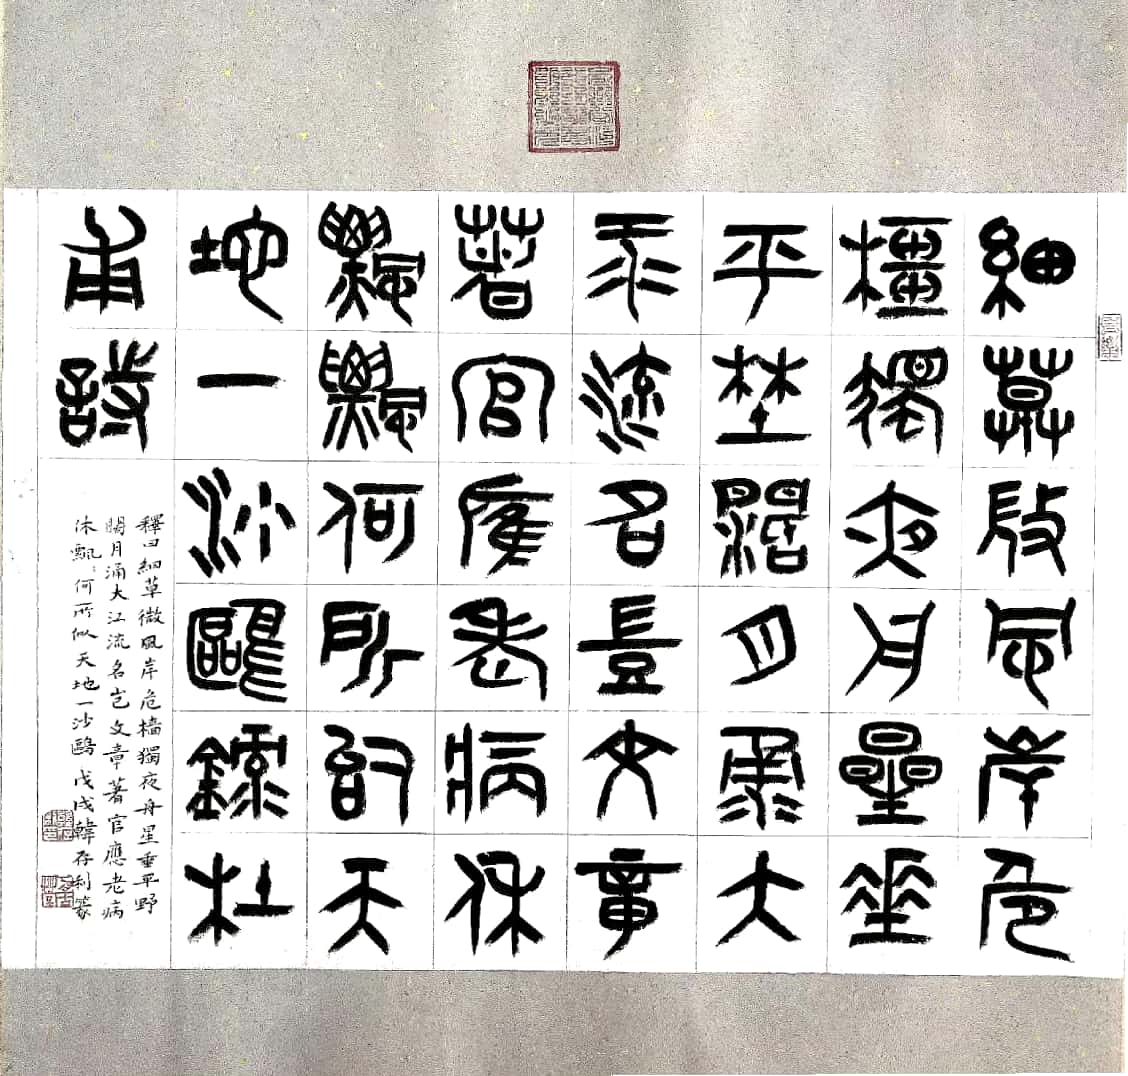 細草微風岸危
檣獨夜舟星垂
平野闊月涌大
江流名豈文章
著官應老病休
飄飄何所似天
地一沙鷗錄杜
甫詩
釋曰細草微風岸危檣獨夜舟星垂平野
闊月涌大江流名岂文章著官應老病
休飄〻何所似天地一沙鷗 戊戌韓存利篆